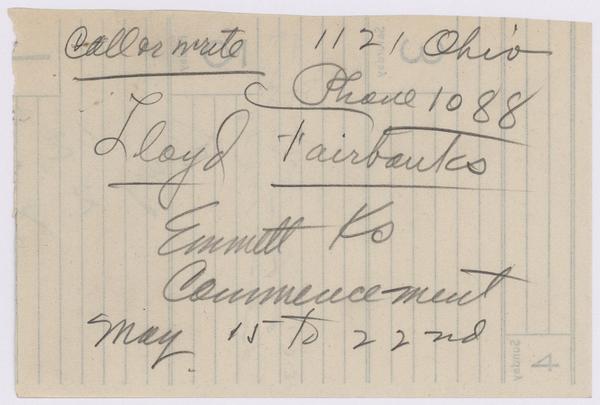 Call or write 1121 Ohio
Phone 1088
Lloyd Fairbanks
Emmett Ks
Commencement
May 15 to 22nd
Sunday
4